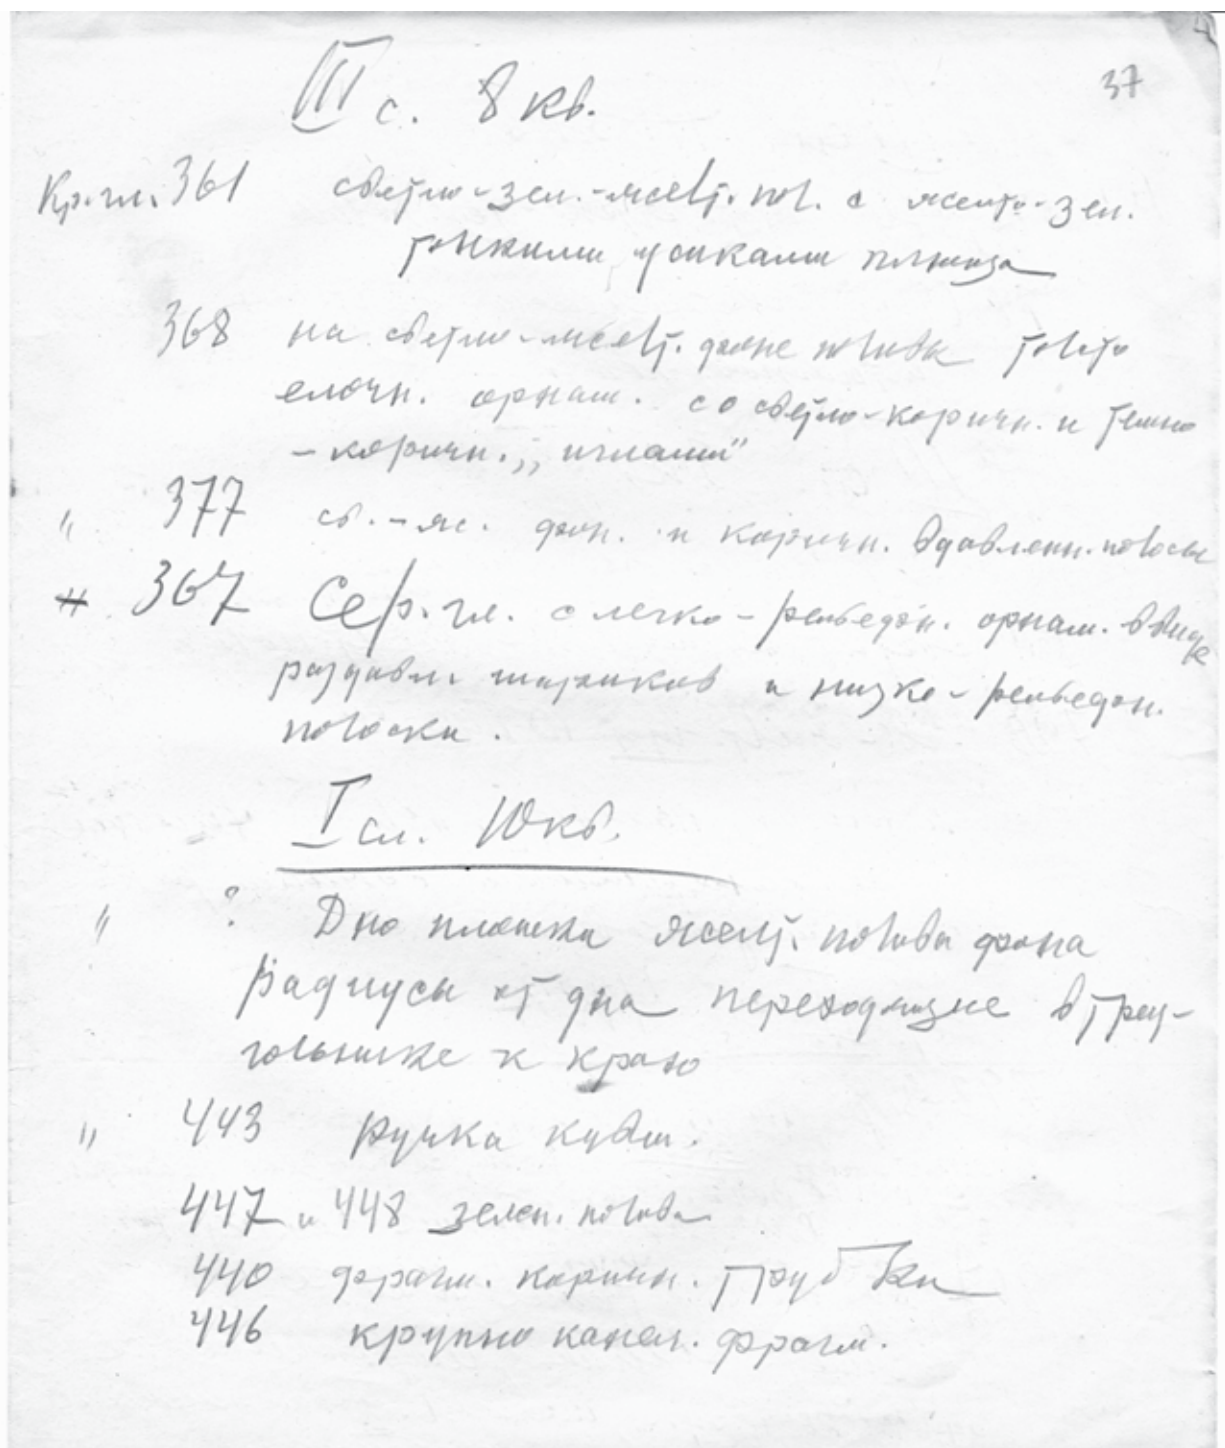 37
III с. 8 кв.
Кр. гл. 361 светло-зел.-желт. пол. с желто-зел.
тонкими усиками плюща
368 на светло-желт. фоне полива
елочн. орнам. со светло-коричн. и темно
-коричн. „иглами"
" 377 св.-ж. фон. и коричн. вдавленн. полосы
367 Сер. гл. с легко-рельефн. орнам. в виде
раздавл. шариков и низко-рельефн.
полоски.
I сл. 10 кв.
" ? Дно плошки желт. полива фона
Радиусы от дна переходящие в треу-
гольнике к краю
" 443 ручка кувш.
447 и 448 зелен. полива
440 фрагм. коричн. трубки
446 крупно канел. фрагм.